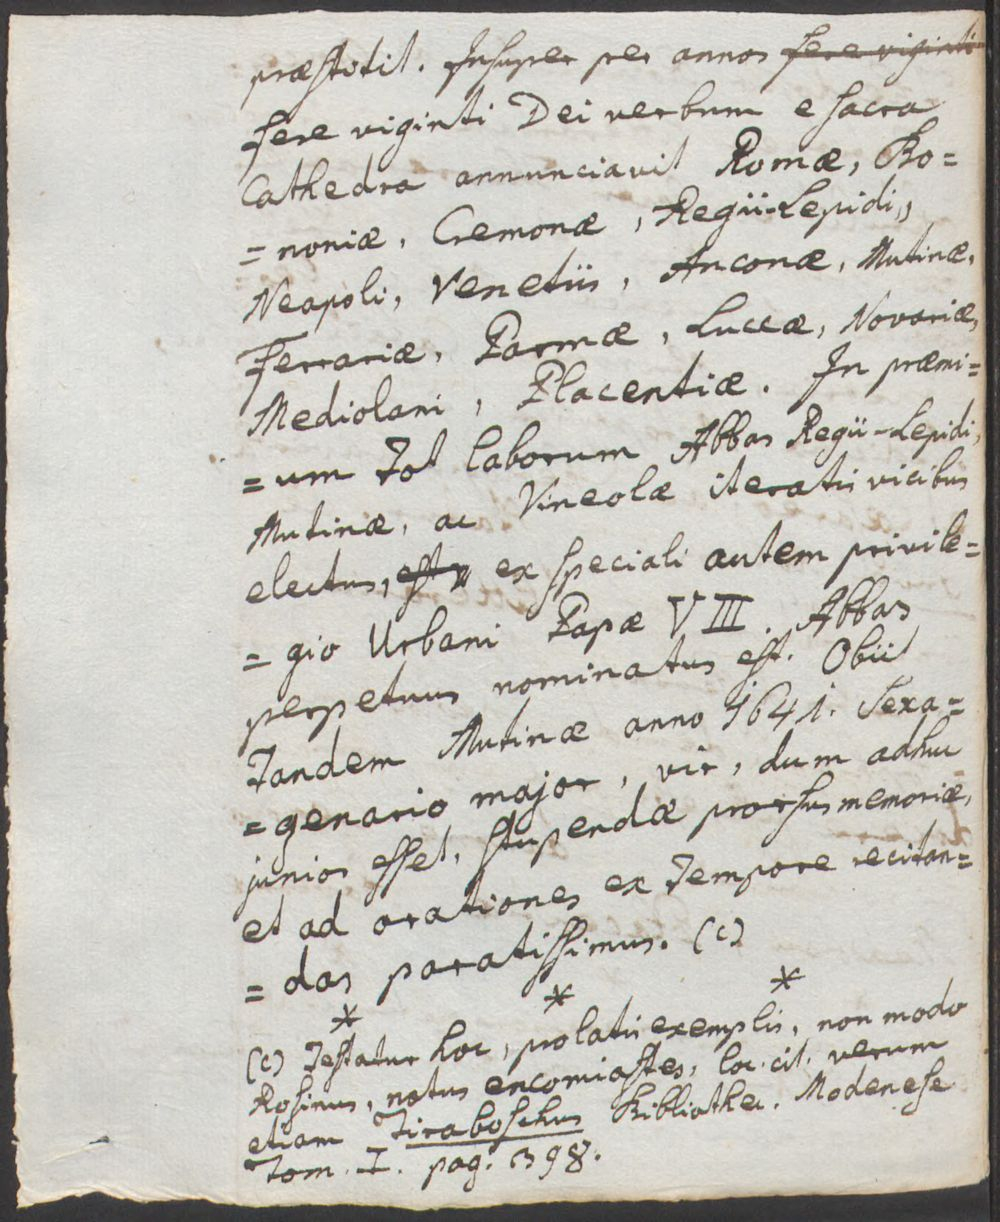 præstitit. Insuper per annos fere viginti
fere viginti Dei verbum e sacra
Cathedra annunciavit Romæ, Bo=
=noniæ, Cremonæ, Regii-Lepidi,
Neapoli, Venetiis, Anconæ, Mutinæ,
Ferrariæ, Parmæ, Luccæ, Novariæ,
Mediolani, Placentiæ. In præmi=
=um tot laborum Abbas Regii-Lepidi,
Mutinæ, ac Vineolæ iteratis vicibus
electus, est, ex speciali autem privile=
=gio Urbani Papæ VIII. Abbas
perpetuus nominatus est. Obiit
tandem Mutinæ anno 1641. Sexa=
=genario major, vir, dum adhuc
junior esset, stupendæ prorsus memoriæ,
et ad orationes ex tempore recitan=
=das paratissimus. (c)
* * *
(c) Testatur hoc, prolatis exemplis, non modo
Rosinus, notus encomiastes, loc. cit. verum
etiam Tiraboschus Bibliothec. Modenese
Tom. I. pag. 398.